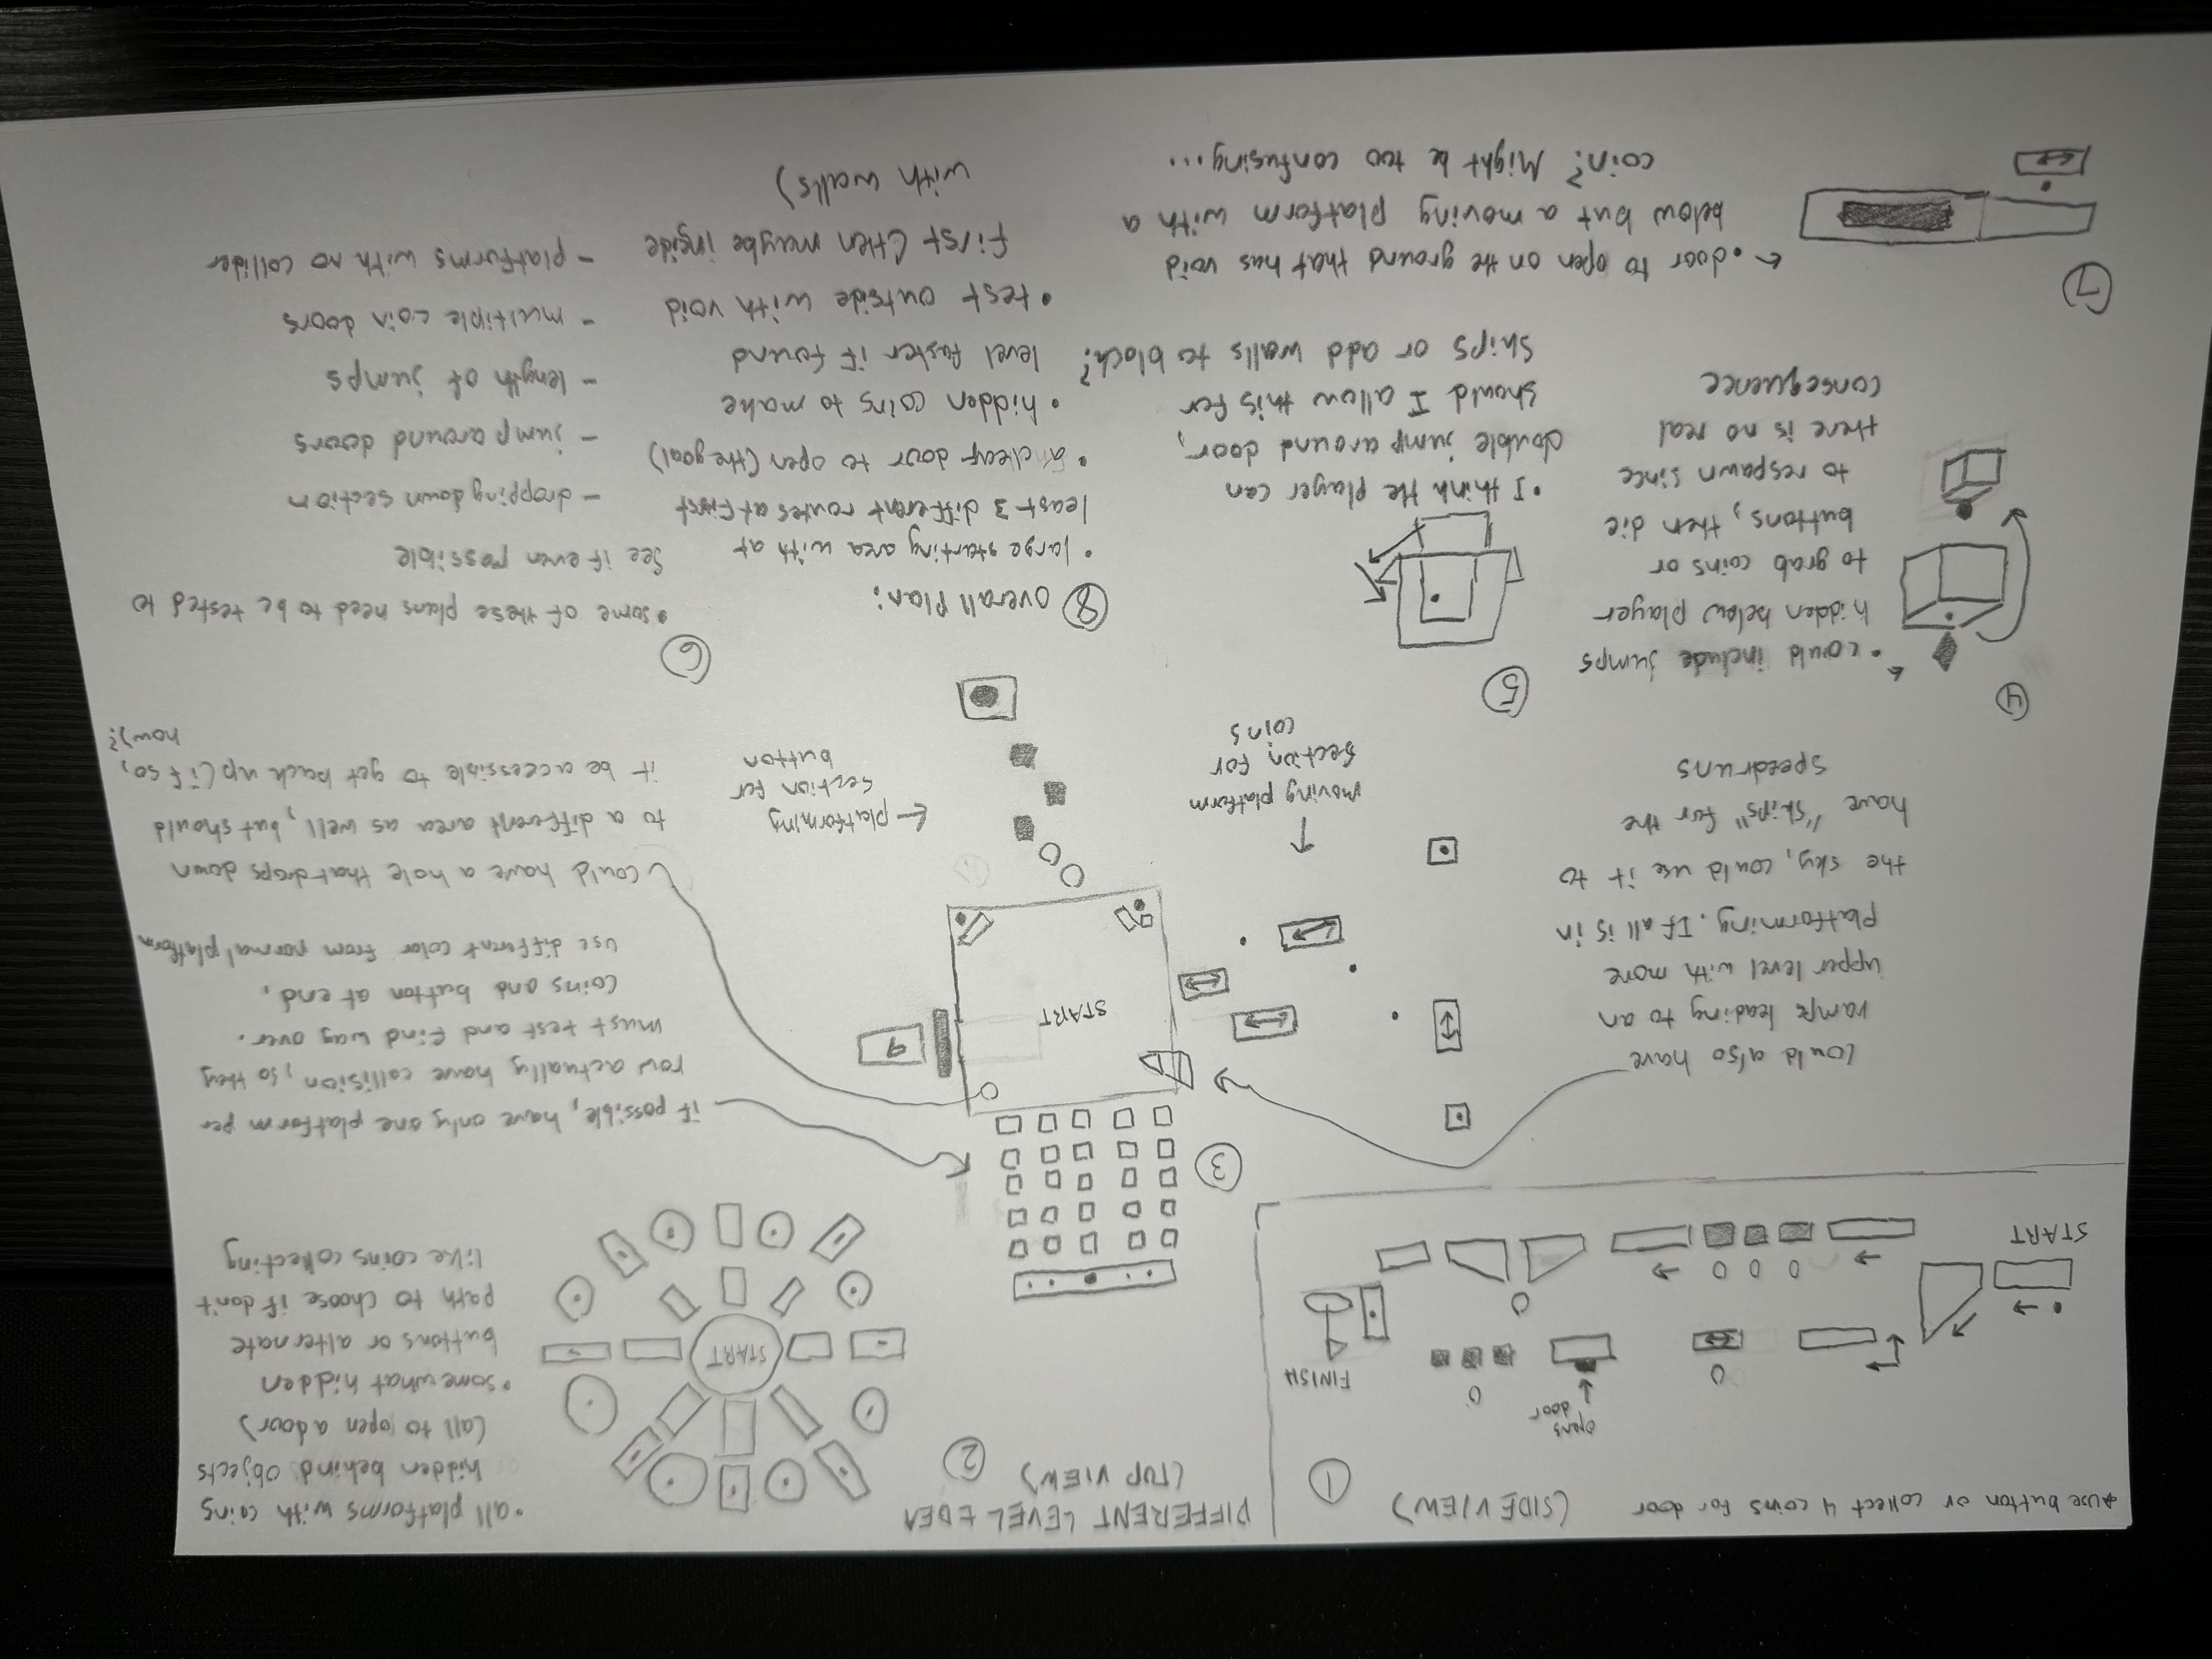 *use button or collect 4 coins for door
(SIDE VIEW)
1
opens
door
FINISH
START
DIFFERENT LEVEL IDEA
(TOP VIEW)
2
START
• all platforms with coins
hidden behind objects
(all to open a door)
• somewhat hidden
buttons or alternate
path to choose if don't
like coins collecting
3
could also have
ramps leading to an
upper level with more
platforming. If all is in
the sky, could use it to
have "skips" for the
speedruns
START
9
moving platform
section for
coins
← platforming
section for
button
if possible, have only one platform per
row actually have collision, so they
must test and find way over.
coins and button at end.
use different color from normal platform
could have a hole that drops down
to a different area as well, but should
it be accessible to get back up (if so,
how)?
4
• could include jumps
hidden below player
to grab coins or
buttons, then die
to respawn since
there is no real
consequence
5
• I think the player can
double jump around door,
should I allow this for
skips or add walls to block?
6
• some of these plans need to be tested to
see if even possible
- dropping down section
- jump around doors
- length of jumps
- multiple coin doors
- platforms with no collider
7
• door to open on the ground that has void
below but a moving platform with a
coin? Might be too confusing...
8 Overall Plan:
• large starting area with at
least 3 different routes at first
• a clear door to open (the goal)
• hidden coins to make
level faster if found
• test outside with void
first (then maybe inside
with walls)